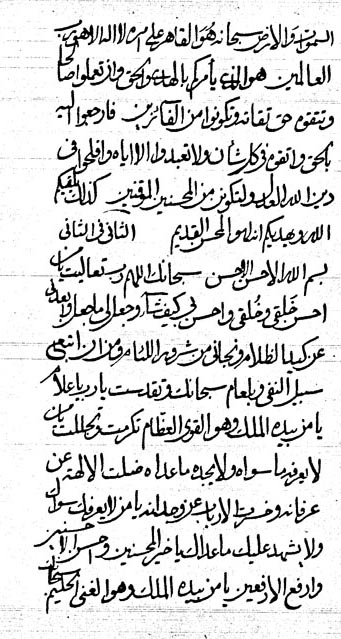 السموات والارض سبحانه هو القاهر على امره لا اله الا هو رب
العالمين هو الذي يأمركم بالهدى والحق وان تعملوا صالحا
وتتقوه حق تقاته وتكونوا من الفائزين فارجعوا اليه
بالحق واتقوه في كل شأن ولا تعبدوا الا اياه وافلحوا في
دين الله العدل ولتكونن من المحسنين الموقنين كذلك
الله ويهديكم انه لهو المحسن القديم الثاني في الثاني
بسم الله الاحسن الاحسن سبحانك اللهم رب تعاليت يا من
احسن خَلقي وخُلقي واحسن في كيف شاء وجعل لي ما جعل
عن كيد الظلام ونجاني من شرور اللئام ومن ان
سبيل النفي وبلعام سبحانك وتقدست يا رب يا علام
يا من بيده الملك وهو القوى العظام تكرمت وتجللت يا من
لا يعرفه ما سواه ولا يجده ما عداه ضلت الالهة عن
عرفانه الارباب عن وجدانه يا من لا يعرفك سواك
ولا يشهد عليك ما عداك يا خير المحسنين واحسن الاحسنين
وارفع الارفعين يا من بيده الملك وهو الغنى الحليم سبحان